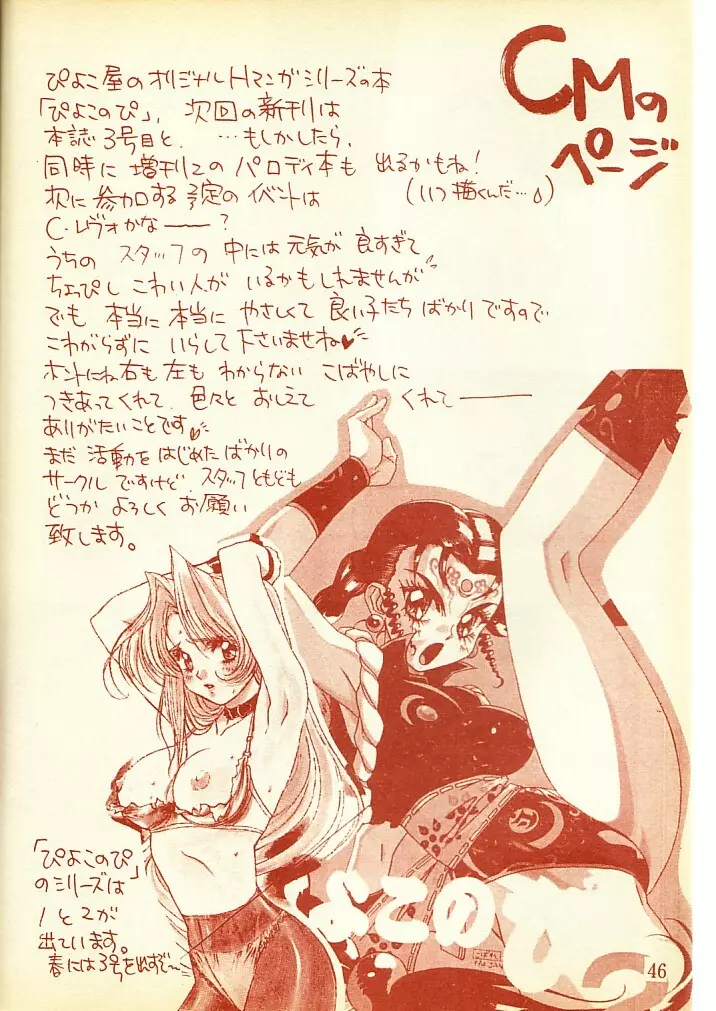 CMの
ページ
ぴよこ屋のオリジナルHマンガシリーズの本
「ぴよこのぴ」、次回の新刊は
本誌3号目と、…もしかしたら、
同時に増刊2のパロディ本も出るかもね!
(いつ描くんだ…)
次に参加する予定のイベントは
C・レヴォかな――?
うちのスタッフの中には元気が良すぎて
ちょっぴしこわい人がいるかもしれませんが
でも本当に本当にやさしくて良い子たちばかりですので
こわがらずにいらして下さいませね♥
ホントにね右も左もわからないこばやしに
つきあってくれて、色々とおしえてくれて――
ありがたいことです♥
まだ活動をはじめたばかりの
サークルですけど、スタッフともども
どうかよろしくお願い
致します。
「ぴよこのぴ」
のシリーズは
1と2が
出ています。
春には3号を出すぞ〜
ぴよこの
ぴ
46